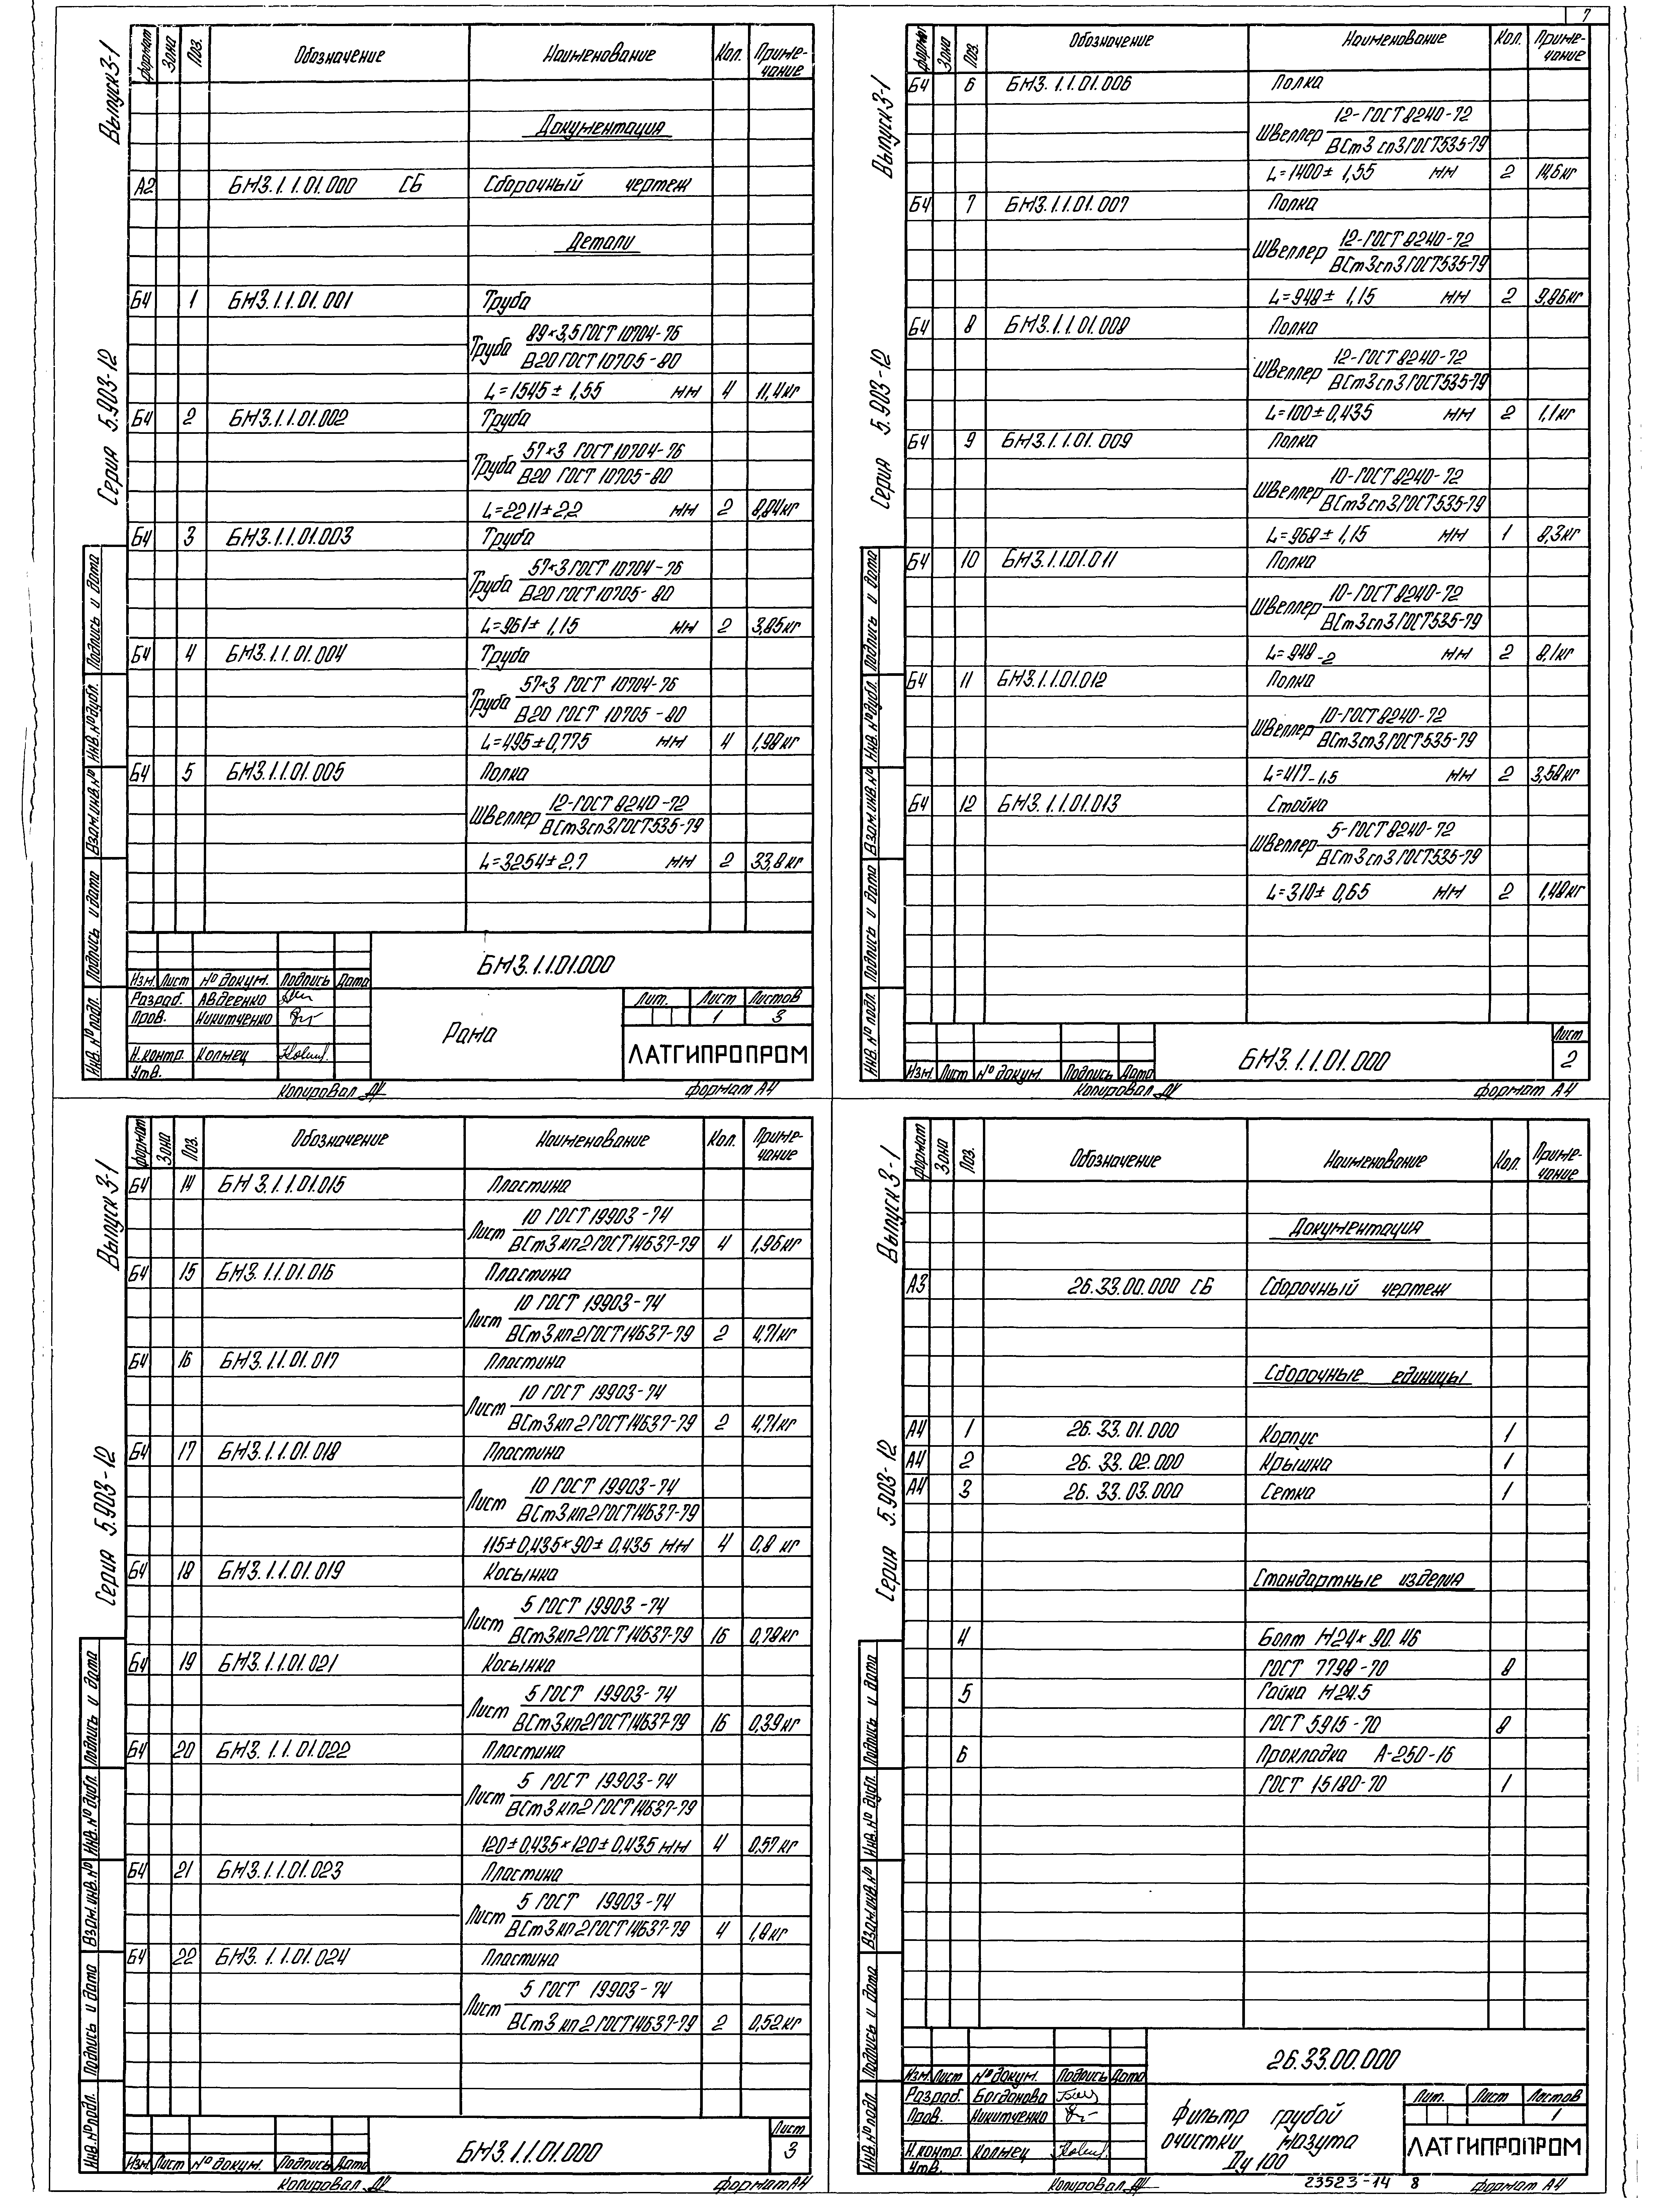 7
Выпуск 3-1
Серия 5.903-12
Формат Зона Поз. Обозначение Наименование Кол. Приме-
чание
Документация
А2 БМ3.1.1.01.000 СБ Сборочный чертеж
Детали
Б4 1 БМ3.1.1.01.001 Труба
Труба 89×3,5 ГОСТ 10704-76
В20 ГОСТ 10705-80
L=1545±1,55 мм 4 11,4кг
Б4 2 БМ3.1.1.01.002 Труба
Труба 57×3 ГОСТ 10704-76
В20 ГОСТ 10705-80
L=2211±2,2 мм 2 8,84кг
Б4 3 БМ3.1.1.01.003 Труба
Труба 57×3 ГОСТ 10704-76
В20 ГОСТ 10705-80
L=961±1,15 мм 2 3,85кг
Б4 4 БМ3.1.1.01.004 Труба
Труба 57×3 ГОСТ 10704-76
В20 ГОСТ 10705-80
L=495±0,775 мм 4 1,98кг
Б4 5 БМ3.1.1.01.005 Полка
Швеллер 12-ГОСТ 8240-72
ВСт3сп3ГОСТ535-79
L=3254±2,7 мм 2 33,8кг
Инв.№подл. Подпись и дата Взам.инв.№ Инв.№дубл. Подпись и дата
БМ3.1.1.01.000
Изм. Лист № докум. Подпись Дата
Разраб. Авдеенко
Пров. Никитченко
Н.контр. Колмец
Утв.
Рама
Лит. Лист Листов
1 3
ЛАТГИПРОПРОМ
Копировал формат А4
Выпуск 3-1
Серия 5.903-12
Формат Зона Поз. Обозначение Наименование Кол. Приме-
чание
Б4 6 БМ3.1.1.01.006 Полка
Швеллер 12-ГОСТ 8240-72
ВСт3сп3ГОСТ535-79
L=1400±1,55 мм 2 14,6кг
Б4 7 БМ3.1.1.01.007 Полка
Швеллер 12-ГОСТ 8240-72
ВСт3сп3ГОСТ535-79
L=948±1,15 мм 2 9,86кг
Б4 8 БМ3.1.1.01.008 Полка
Швеллер 12-ГОСТ 8240-72
ВСт3сп3ГОСТ535-79
L=100±0,435 мм 2 1,1кг
Б4 9 БМ3.1.1.01.009 Полка
Швеллер 10-ГОСТ 8240-72
ВСт3сп3ГОСТ535-79
L=968±1,15 мм 1 8,3кг
Б4 10 БМ3.1.1.01.011 Полка
Швеллер 10-ГОСТ 8240-72
ВСт3сп3ГОСТ535-79
L=948-2 мм 2 8,1кг
Б4 11 БМ3.1.1.01.012 Полка
Швеллер 10-ГОСТ 8240-72
ВСт3сп3ГОСТ535-79
L=417-1,5 мм 2 3,58кг
Б4 12 БМ3.1.1.01.013 Стойка
Швеллер 5-ГОСТ 8240-72
ВСт3сп3ГОСТ535-79
L=310±0,65 мм 2 1,48кг
Инв.№подл. Подпись и дата Взам.инв.№ Инв.№дубл. Подпись и дата
Изм. Лист № докум. Подпись Дата
БМ3.1.1.01.000
Лист
2
Копировал формат А4
Выпуск 3-1
Серия 5.903-12
Формат Зона Поз. Обозначение Наименование Кол. Приме-
чание
Б4 14 БМ3.1.1.01.015 Пластина
Лист 10 ГОСТ 19903-74
ВСт3кп2ГОСТ14637-79 4 1,96кг
Б4 15 БМ3.1.1.01.016 Пластина
Лист 10 ГОСТ 19903-74
ВСт3кп2ГОСТ14637-79 2 4,71кг
Б4 16 БМ3.1.1.01.017 Пластина
Лист 10 ГОСТ 19903-74
ВСт3кп2ГОСТ14637-79 2 4,71кг
Б4 17 БМ3.1.1.01.018 Пластина
Лист 10 ГОСТ 19903-74
ВСт3кп2ГОСТ14637-79
115±0,435×90±0,435 мм 4 0,8 кг
Б4 18 БМ3.1.1.01.019 Косынка
Лист 5 ГОСТ 19903-74
ВСт3кп2ГОСТ14637-79 16 0,78кг
Б4 19 БМ3.1.1.01.021 Косынка
Лист 5 ГОСТ 19903-74
ВСт3кп2ГОСТ14637-79 16 0,39кг
Б4 20 БМ3.1.1.01.022 Пластина
Лист 5 ГОСТ 19903-74
ВСт3кп2ГОСТ14637-79
120±0,435×120±0,435 мм 4 0,57кг
Б4 21 БМ3.1.1.01.023 Пластина
Лист 5 ГОСТ 19903-74
ВСт3кп2ГОСТ14637-79 4 1,8кг
Б4 22 БМ3.1.1.01.024 Пластина
Лист 5 ГОСТ 19903-74
ВСт3кп2ГОСТ14637-79 2 0,52кг
Инв.№подл. Подпись и дата Взам.инв.№ Инв.№дубл. Подпись и дата
Изм. Лист № докум. Подпись Дата
БМ3.1.1.01.000
Лист
3
Копировал формат А4
Выпуск 3-1
Серия 5.903-12
Формат Зона Поз. Обозначение Наименование Кол. Приме-
чание
Документация
А3 26.33.00.000 СБ Сборочный чертеж
Сборочные единицы
А4 1 26.33.01.000 Корпус 1
А4 2 26.33.02.000 Крышка 1
А4 3 26.33.03.000 Сетка 1
Стандартные изделия
4 Болт М24×90.46
ГОСТ 7798-70 8
5 Гайка М24.5
ГОСТ 5915-70 8
6 Прокладка А-250-16
ГОСТ 15180-70 1
Инв.№подл. Подпись и дата Взам.инв.№ Инв.№дубл. Подпись и дата
26.33.00.000
Изм. Лист № докум. Подпись Дата
Разраб. Богданова
Пров. Никитченко
Н.контр. Колмец
Утв.
Фильтр грубой
очистки мазута
Ду 100
Лит. Лист Листов
1
ЛАТГИПРОПРОМ
Копировал 23523-14 8 формат А4